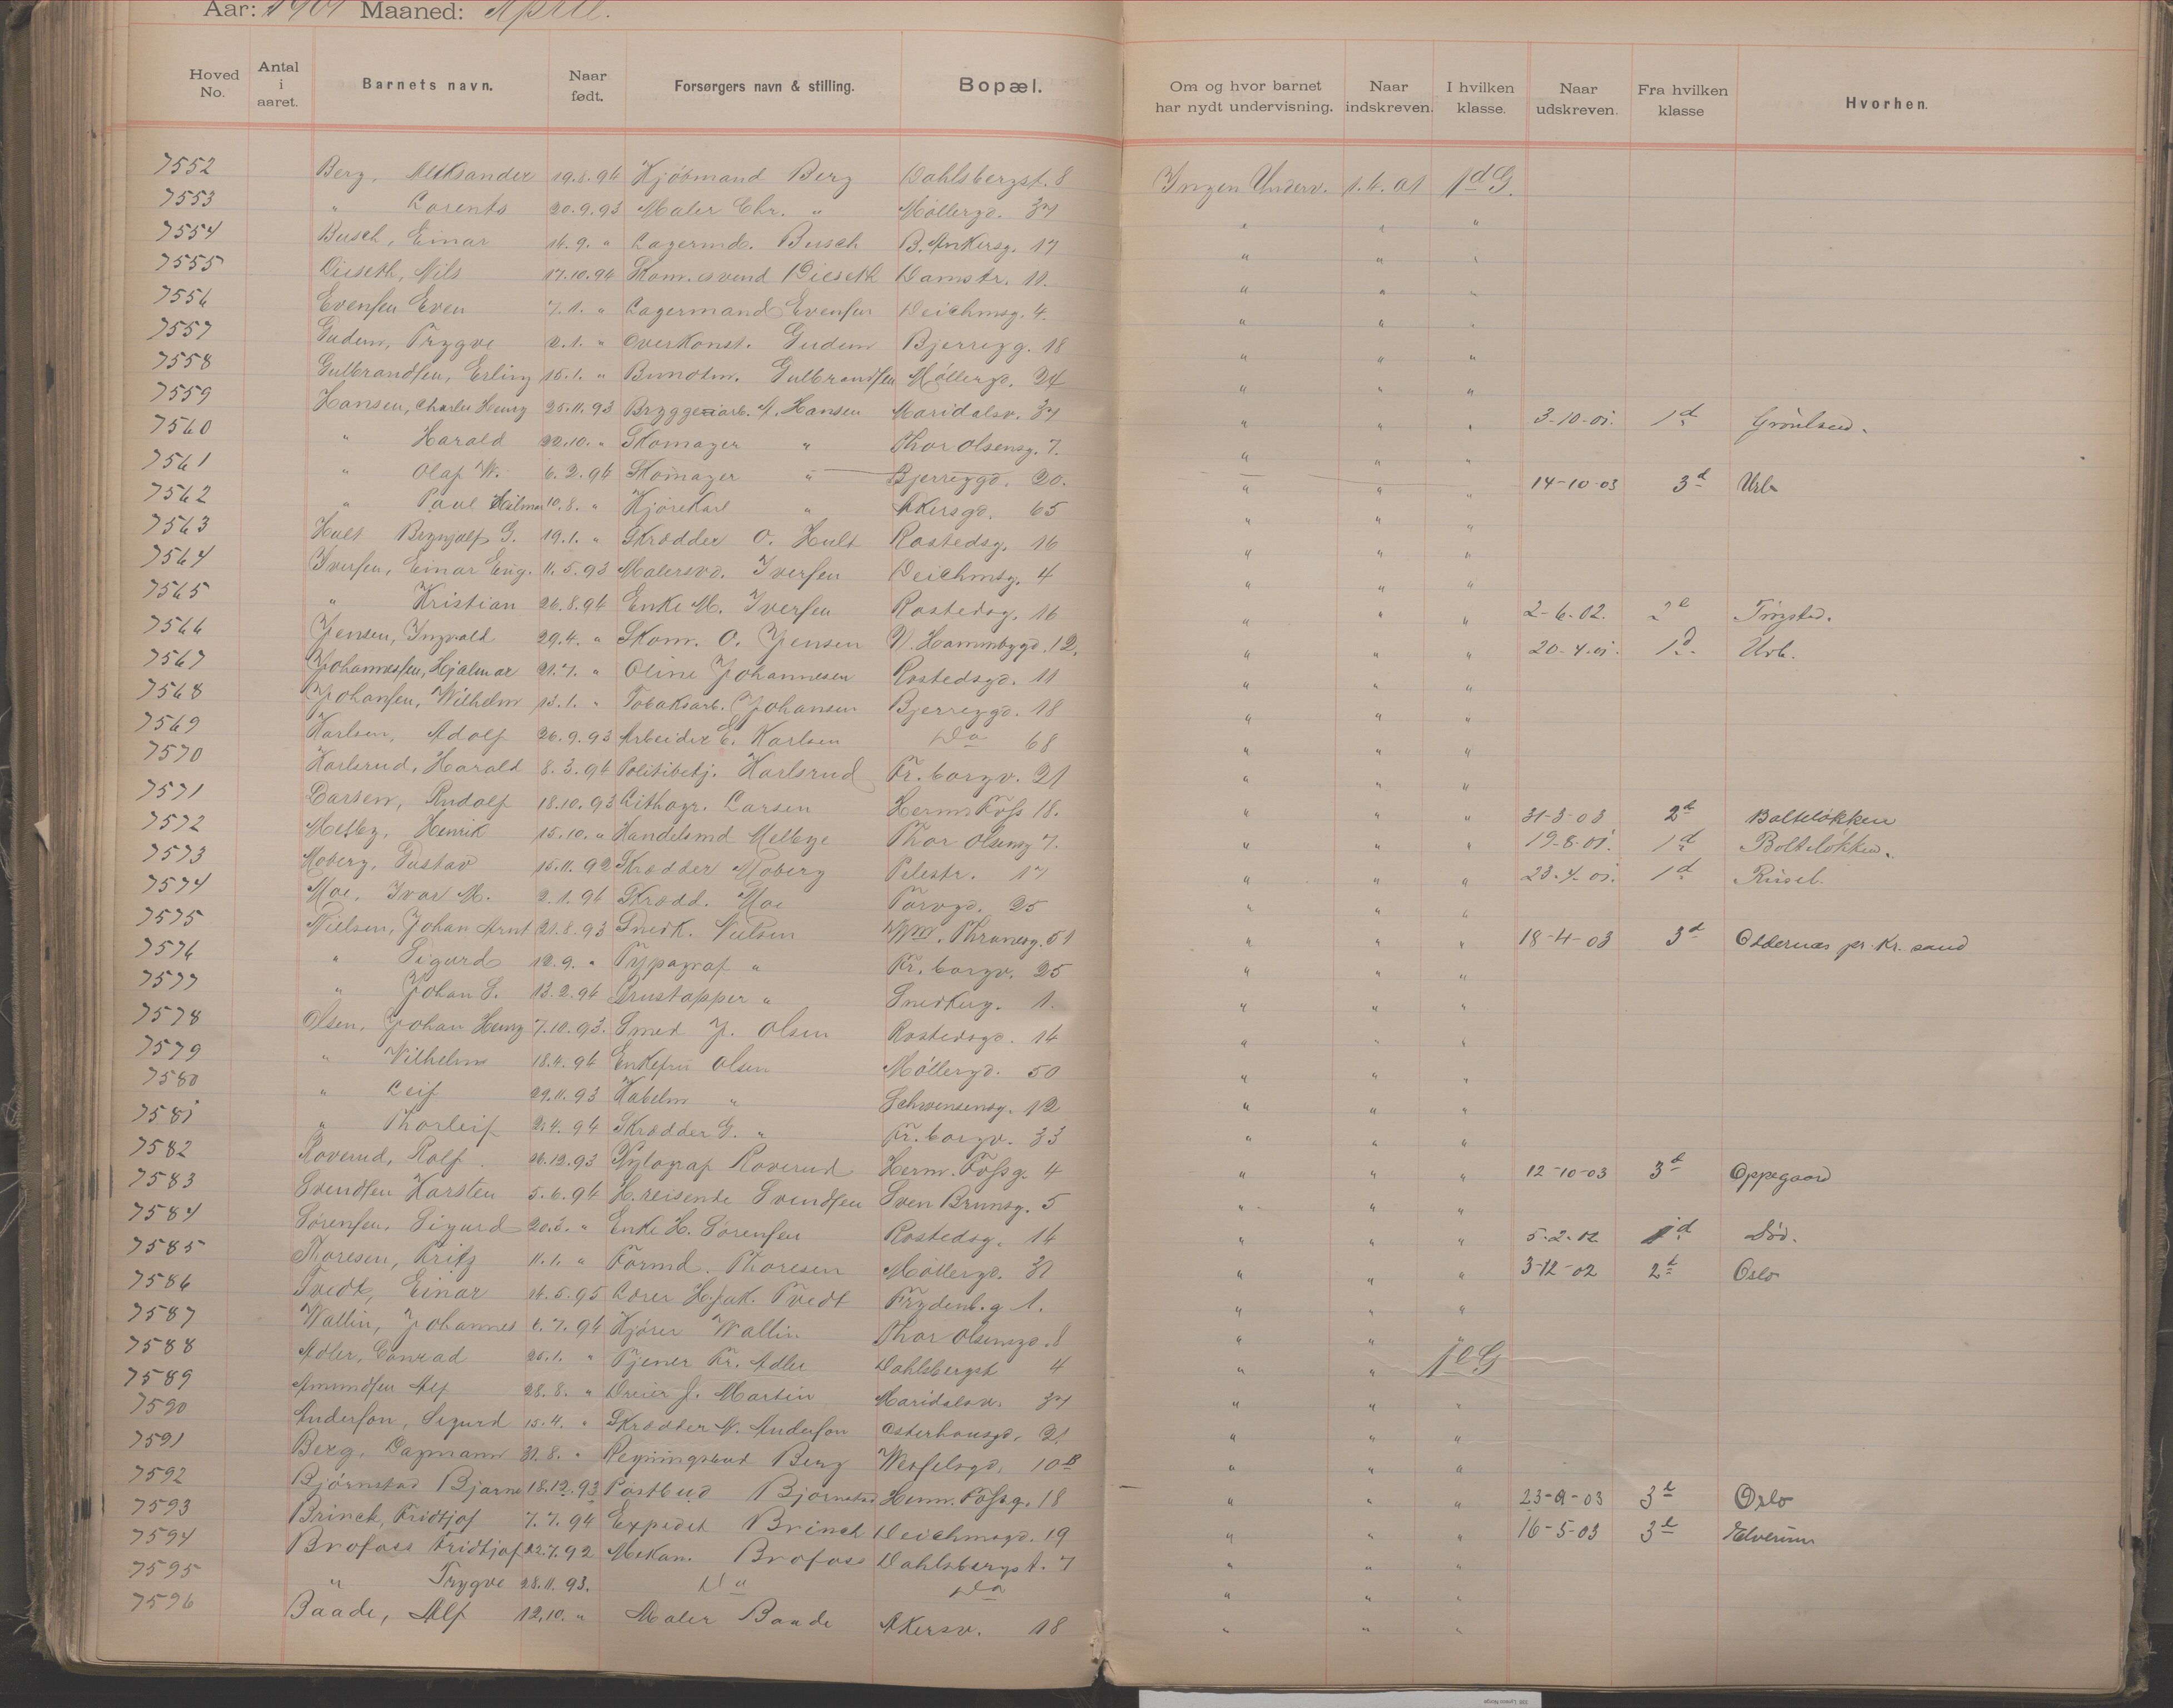 Aar: 1901 Maaned: April.
Hoved No. Antal i aaret. Barnets navn. Naar født. Forsørgers navn & stilling. Bopæl. Om og hvor barnet har nydt undervisning. Naar indskreven. I hvilken klasse. Naar udskreven. Fra hvilken klasse Hvorhen.
7552 Berg, Aleksander 19.8.94 Kjøbmand Berg Dahlsbergst. 8 Ingen Underv. 1.4.01 1d G.
7553 " Lorents 20.9.93 Maler Chr. " Møllergd. 37 " " "
7554 Busch, Einar 16.9. " Lagermd. Busch B. Ankersg. 17 " " "
7555 Dieseth, Nils 17.10.94 Skom.svend Dieseth Damstr. 11. " " "
7556 Evensen Even 7.11. " Lagermand Evensen Deichmsg. 4. " " "
7557 Gudem, Trygve 2.1. " Overkonst. Gudem Bjerregg. 18 " " "
7558 Gulbrandsen, Erling 15.1. " Bundtm. Gulbrandsen Møllergd. 24 " " "
7559 Hansen, Charles Henry 25.11.93 Bryggeriarb. A. Hansen Maridalsv. 37 " " " 3-10-01. 1d Grønland.
7560 " Harald 22.10. " Skomager " Thor Olsensg. 7. " " "
7561 " Olaf W. 6.2.94 Skomager " Bjerreggd. 20. " " " 14-10-03 3d Urb.
7562 " Paul Hilmar 10.8. " Kjørekarl " Akersgd. 65 " " "
7563 Hult Brynjolf G. 19.1. " Skrædder O. Hult Rostedsg. 16 " " "
7564 Iversen, Einar Eug. 11.5.93 Malersvd. Iversen Deichmsg. 4 " " "
7565 " Kristian 26.8.94 Enke M. Iversen Rostedsg. 16 " " " 2-6-02. 2e Trøgstad.
7566 Jensen, Ingvald 29.4. " Skom. O. Jensen N. Hammbygd. 12. " " " 20-4-01. 1d. Urb.
7567 Johannessen, Hjalmar 21.7. " Oline Johannesen Rostedsgd. 11 " " "
7568 Johansen, Wilhelm 13.1. " Tobaksarb. Johansen Bjerreggd. 18 " " "
7569 Karlsen, Adolf 26.9.93 Arbeider E. Karlsen Do 68 " " "
7570 Karlsrud, Harald 8.3.94 Politibetj. Karlsrud Fr. borgv. 21 " " "
7571 Larsen, Rudolf 18.10.93 Lithogr. Larsen Herm Foss 18. " " " 31-3-03 2d Bolteløkken
7572 Melby, Henrik 15.10. " Handelsmd Melbye Thor Olsensg 7. " " " 19-8-01. 1d Bolteløkken.
7573 Moberg, Gustav 15.11.92 Skrædder Moberg Pilestr. 17 " " " 23-4-01. 1d
7574 Moe, Ivar M. 2.1.94 Skrædd. Moe Torvgd. 25 " " "
7575 Nielsen, Johan Arnt 21.8.93 Snedk. Nielsen Wm. Thranesg. 51 " " " 18-4-03 3d Oddernæs pr. Kr. sand
7576 " Sigurd 12.9. " Typograf " Fr. borgv. 25 " " "
7577 " Johan S. 13.2.94 " Snedkerg. 1. " " "
7578 Olsen, Johan Henry 7.10.93. Smed J. Olsen Rostedsgd. 14 " " "
7579 " Wilhelm 18.4.94 Enkefru Olsen Møllergd. 50 " " "
7580 " Leif 29.11.93 " Schwensensg. 12 " " "
7581 " Thorleif 2.4.94 Skrædder G. " Fr. borgv. 33 " " "
7582 Roverud, Rolf. 26.12.93 Xylograf Roverud Herm. Fossg. 4 " " " 12-10-03 3d Oppegaard
7583 Svendsen Karsten 5.6.94 H.reisende Svendsen Sven Brunsg. 5 " " "
7584 Sørensen, Sigurd 20.3. " Enke H. Sørensen Rostedsg. 14 " " " 5-2-02 1d Død.
7585 Thoresen, Fritz 11.1. " Formd. Thoresen Møllergd. 31 " " " 3-12-02 2d Oslo
7586 Tvedt, Einar 16.5.95 Lærer H. Jak. Tvedt Frydenb.g 1. " " "
7587 Wallin, Johannes 6.7.94 Kjører Wallin Thor Olsensgd. 8 " " "
7588 Adler, Conrad 25.1. " Tjener Fr. Adler Dahlsbergst 4 " " 1e G
7589 Amundsen Alf 28.8. " Dreier J. Martin Maridalsv. 37 " " "
7590 Anderson, Sigurd 15.4. " Skrædder N. Anderson Osterhausgd. 21. " " "
7591 Berg, Dagmann 31.8. " Regningsbud Berg Wesselsgd. 10B " " "
7592 Bjørnstad Bjarne 18.12.93 Postbud Bjørnstad Herm. Fossg. 18 " " " 23-9-03 3e Oslo
7593 Brinch, Fridtjof 7.7.94 Expedit Brinch Deichmsgd. 19 " " " 16-5-03 3e Elverum
7594 Brofoss Fridtjof 22.7.92 Mekan. Brofoss Dahlsbergst. 7 " " "
7595 " Trygve 28.11.93. Do Do " " "
7596 Baade, Alf 12.10. " Maler Baade Akersv. 18 " " "